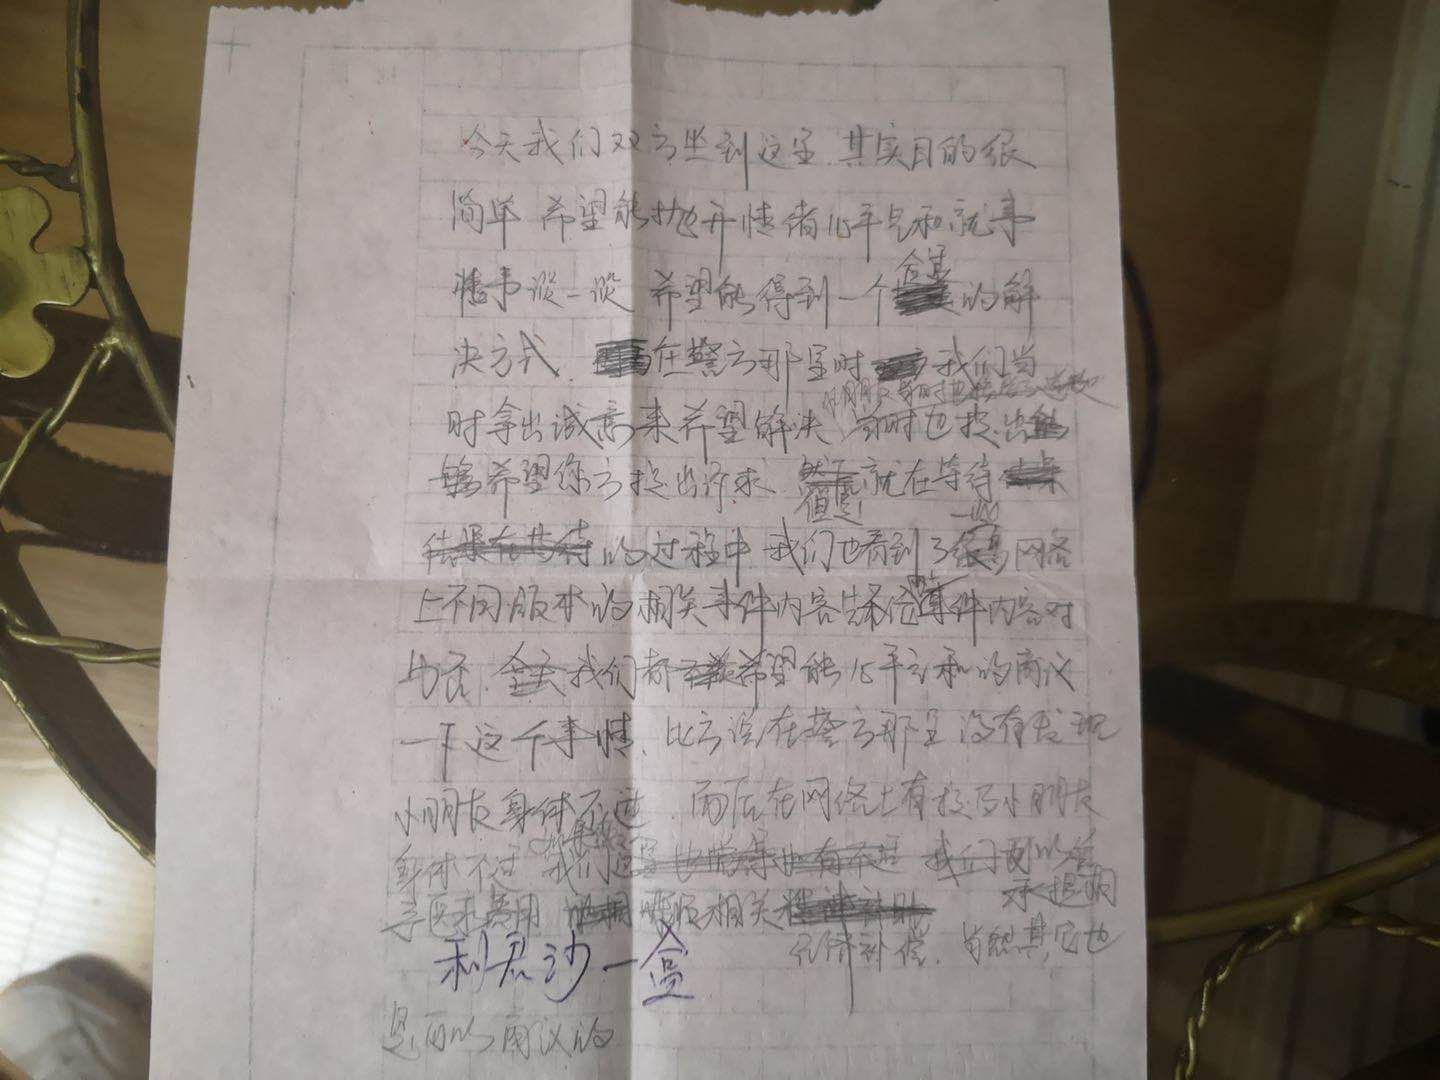 今天我们双方坐到这里.其实目的很
简单 希望能抛开情绪心平气和就事
情事谈一谈 希望能得到一个合适的解
决方式. 在警方那里时 我们当
时拿出诚意来希望解决 当时也提出
希望你方提出诉求 但是就在等待
的过程中 我们也看到了一些网络
上不同版本的相关事件内容 先不论事件内容对
与否. 我们都希望能心平气和的商议
一下这个事情. 比方说在警方那里没有发现
小朋友身体不适. 而后在网络上有提到小朋友
身体不适 我们 我们可以
承担
相关
经济补偿. 当然其它也
利君沙一盒
是可以商议的